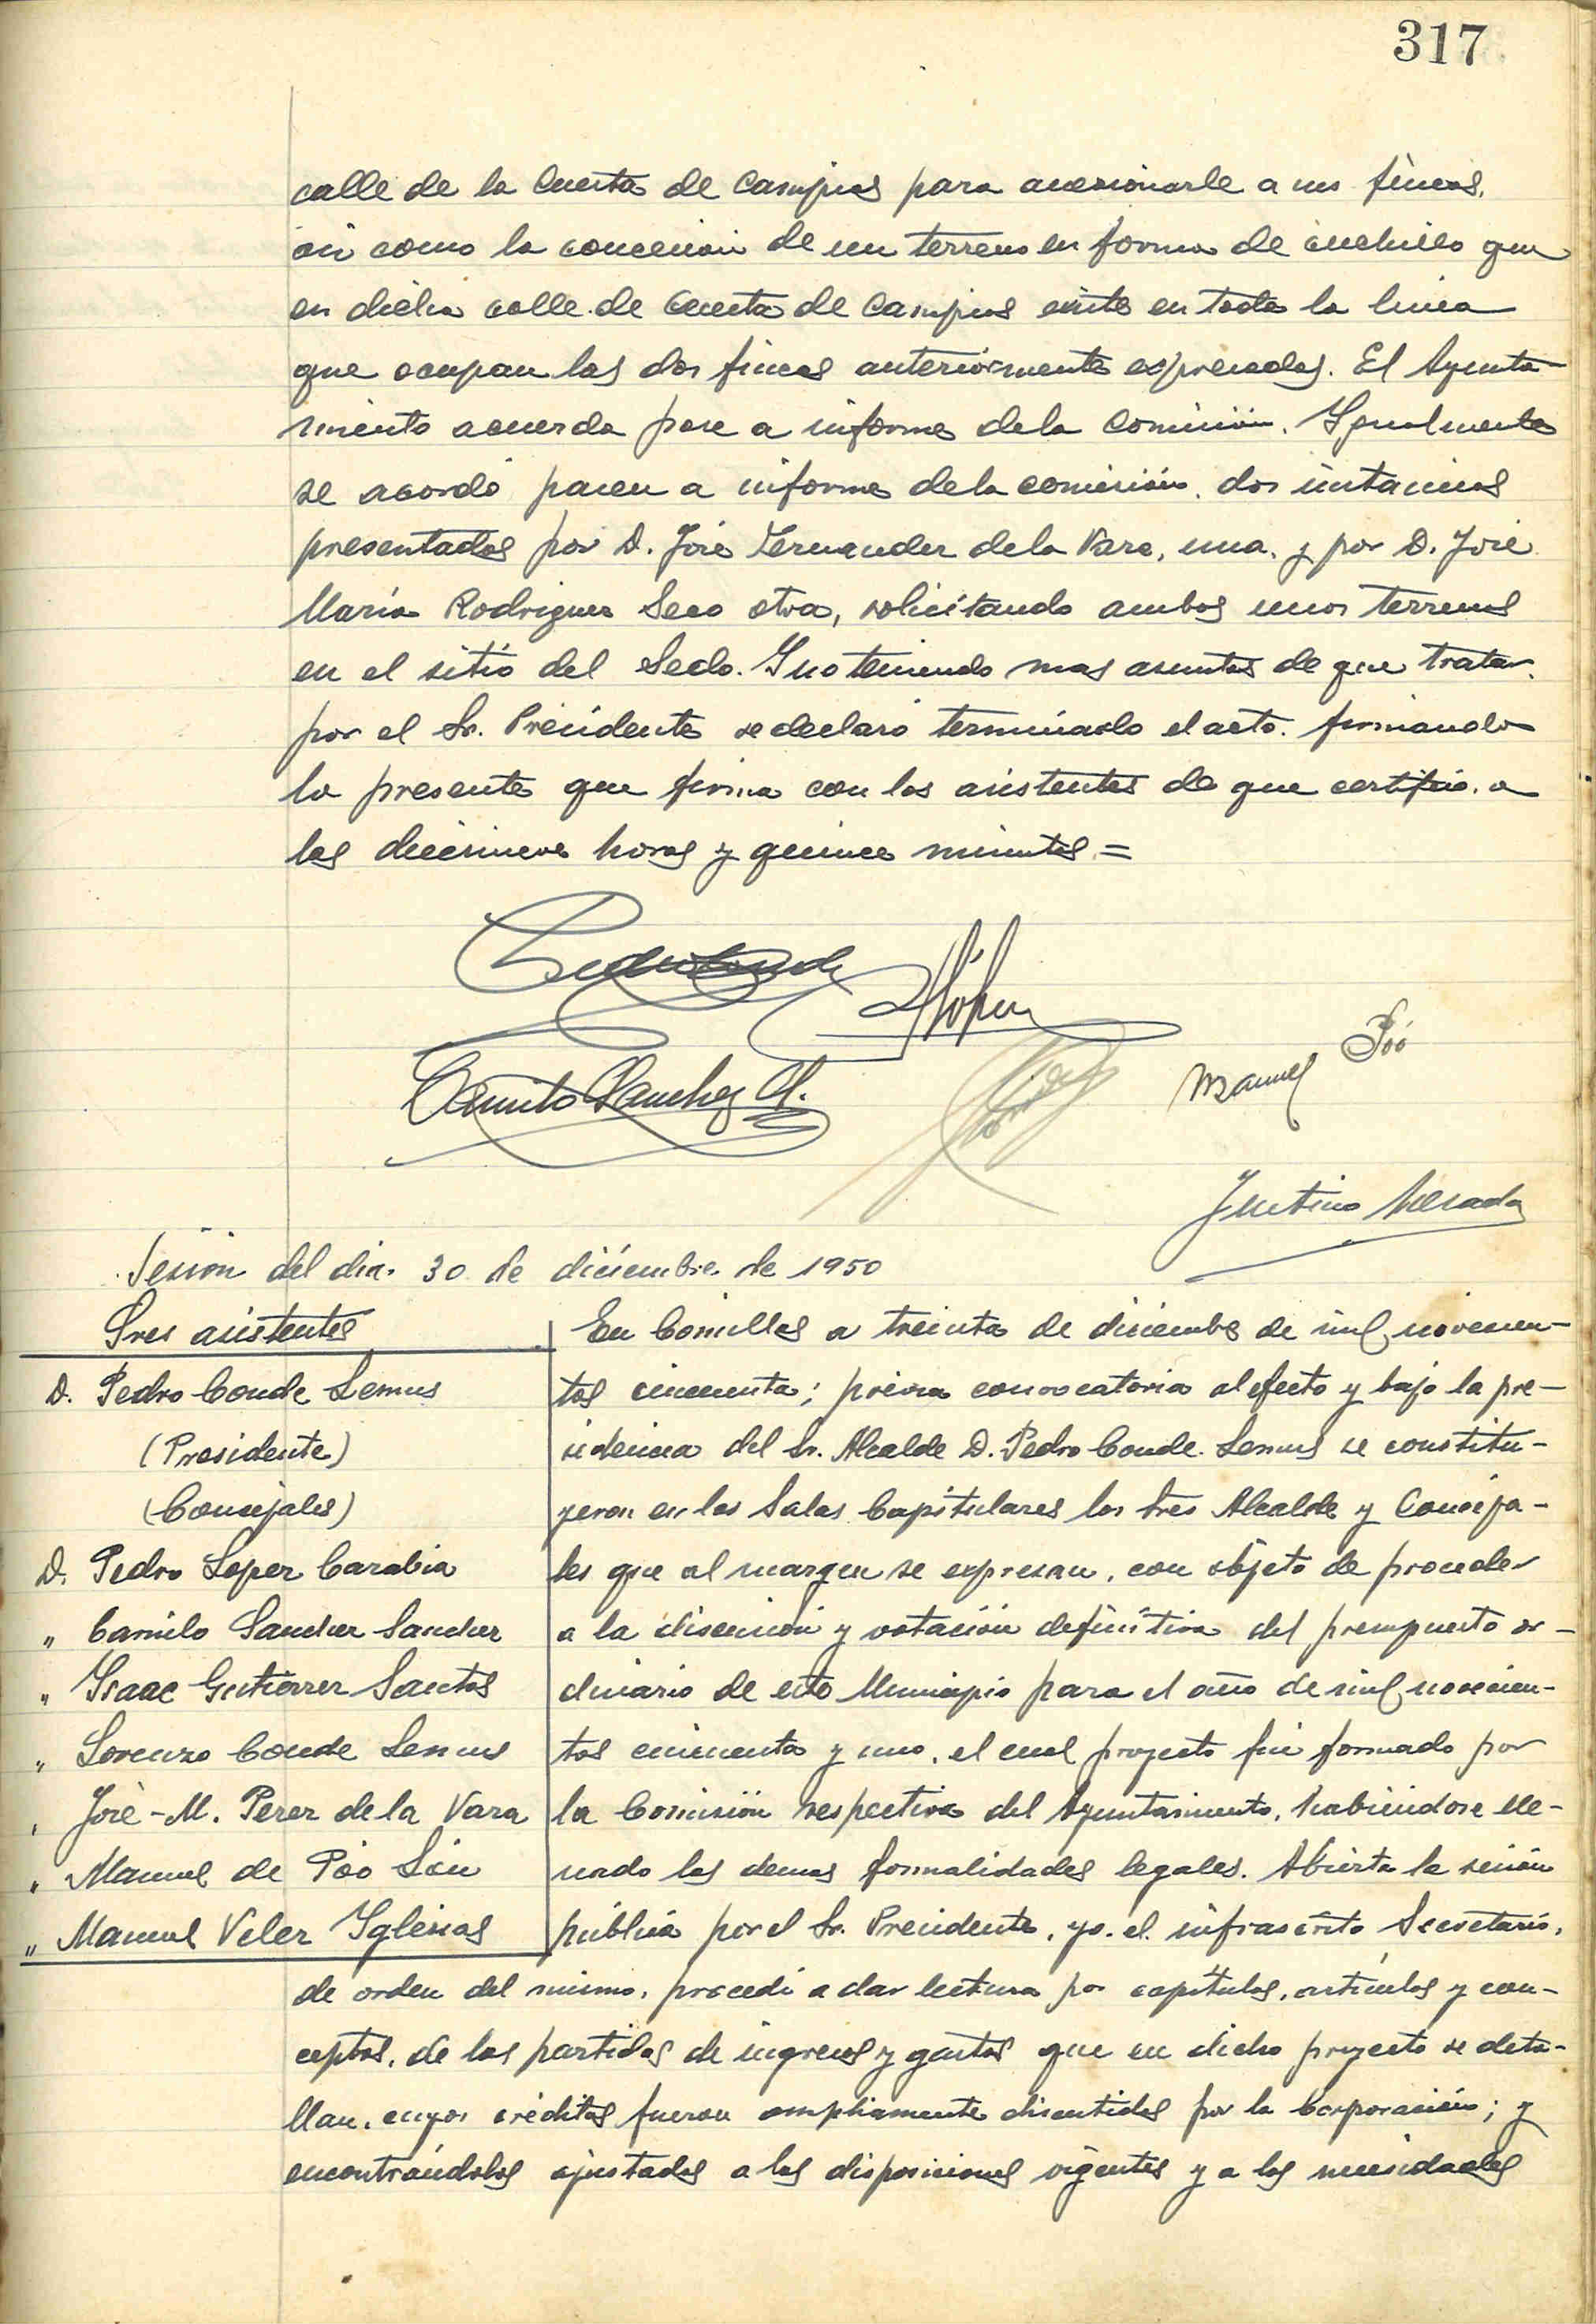 317
calle de la Cuesta de Campios para anexionarle a sus fincas,
asi como la concesion de un terreno en forma de cuchillo que
en dicha calle de Cuesta de Campios existe en toda la linea
que ocupan las dos fincas anteriormente expresadas. El Ayunta-
miento acuerda pase a informe de la Comisión. Igualmente
se acordó pasen a informe de la comisión, dos instancias
presentadas por D. José Fernandez de la Vara, una, y por D. José
Maria Rodriguez Seco otra, solicitando ambos unos terrenos
en el sitio del Sedo. Y no teniendo mas asuntos de que tratar,
por el Sr. Presidente se declaró terminado el acto, firmando
la presente que firma con los asistentes de que certifico, a
las diecinueve horas y quince minutos =
Pedro Conde
PLópez
Camilo Sanchez
Manuel Póo
Justino
Sesión del dia 30 de diciembre de 1950
Sres asistentes
D. Pedro Conde Lemus
(Presidente)
(Concejales)
D. Pedro Lopez Carabia
" Camilo Sanchez Sanchez
" Isaac Gutiérrez Santos
" Lorenzo Conde Lemus
" José-M. Perez de la Vara
" Manuel de Póo
" Manuel Velez Yglesias
En Comillas a treinta de diciembre de mil novecien-
tos cincuenta; previa convocatoria al efecto y bajo la pre-
sidencia del Sr. Alcalde D. Pedro Conde Lemus se constitu-
yeron en las Salas Capitulares los Sres Alcalde y Conceja-
les que al margen se expresan, con objeto de proceder
a la discusión y votación definitiva del presupuesto or-
dinario de este Municipio para el año de mil novecien-
tos cincuenta y uno, el cual proyecto fué formado por
la Comisión respectiva del Ayuntamiento, habiéndose lle-
nado las demas formalidades legales. Abierta la sesión
pública por el Sr. Presidente, yo el infrascrito Secretario,
de orden del mismo, procedí a dar lectura por capitulos, articulos y con-
ceptos, de las partidas de ingresos y gastos que en dicho proyecto se deta-
llan, cuyos créditos fueron ampliamente discutidos por la Corporación; y
encontrándolos ajustados a las disposiciones vigentes y a las necesidades